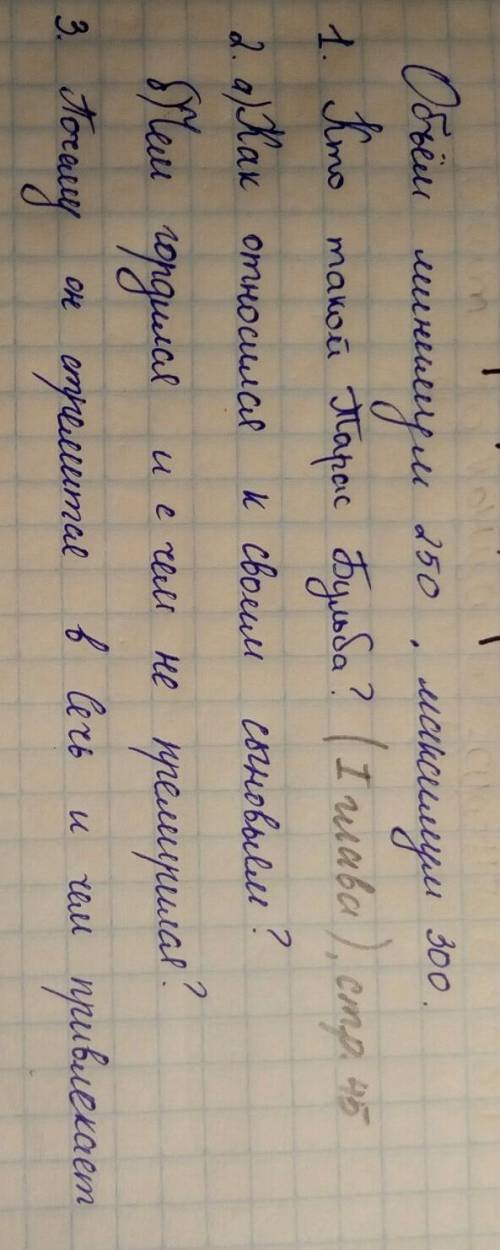 Объём минимум 250, максимум 300.
1. Кто такой Тарас Бульба? (I глава), стр. 45
2. а) Как относился к своим сыновьям?
б) Чем гордился и с чем не премирился?
3. Почему он стремится в Сечь и чем привлекает